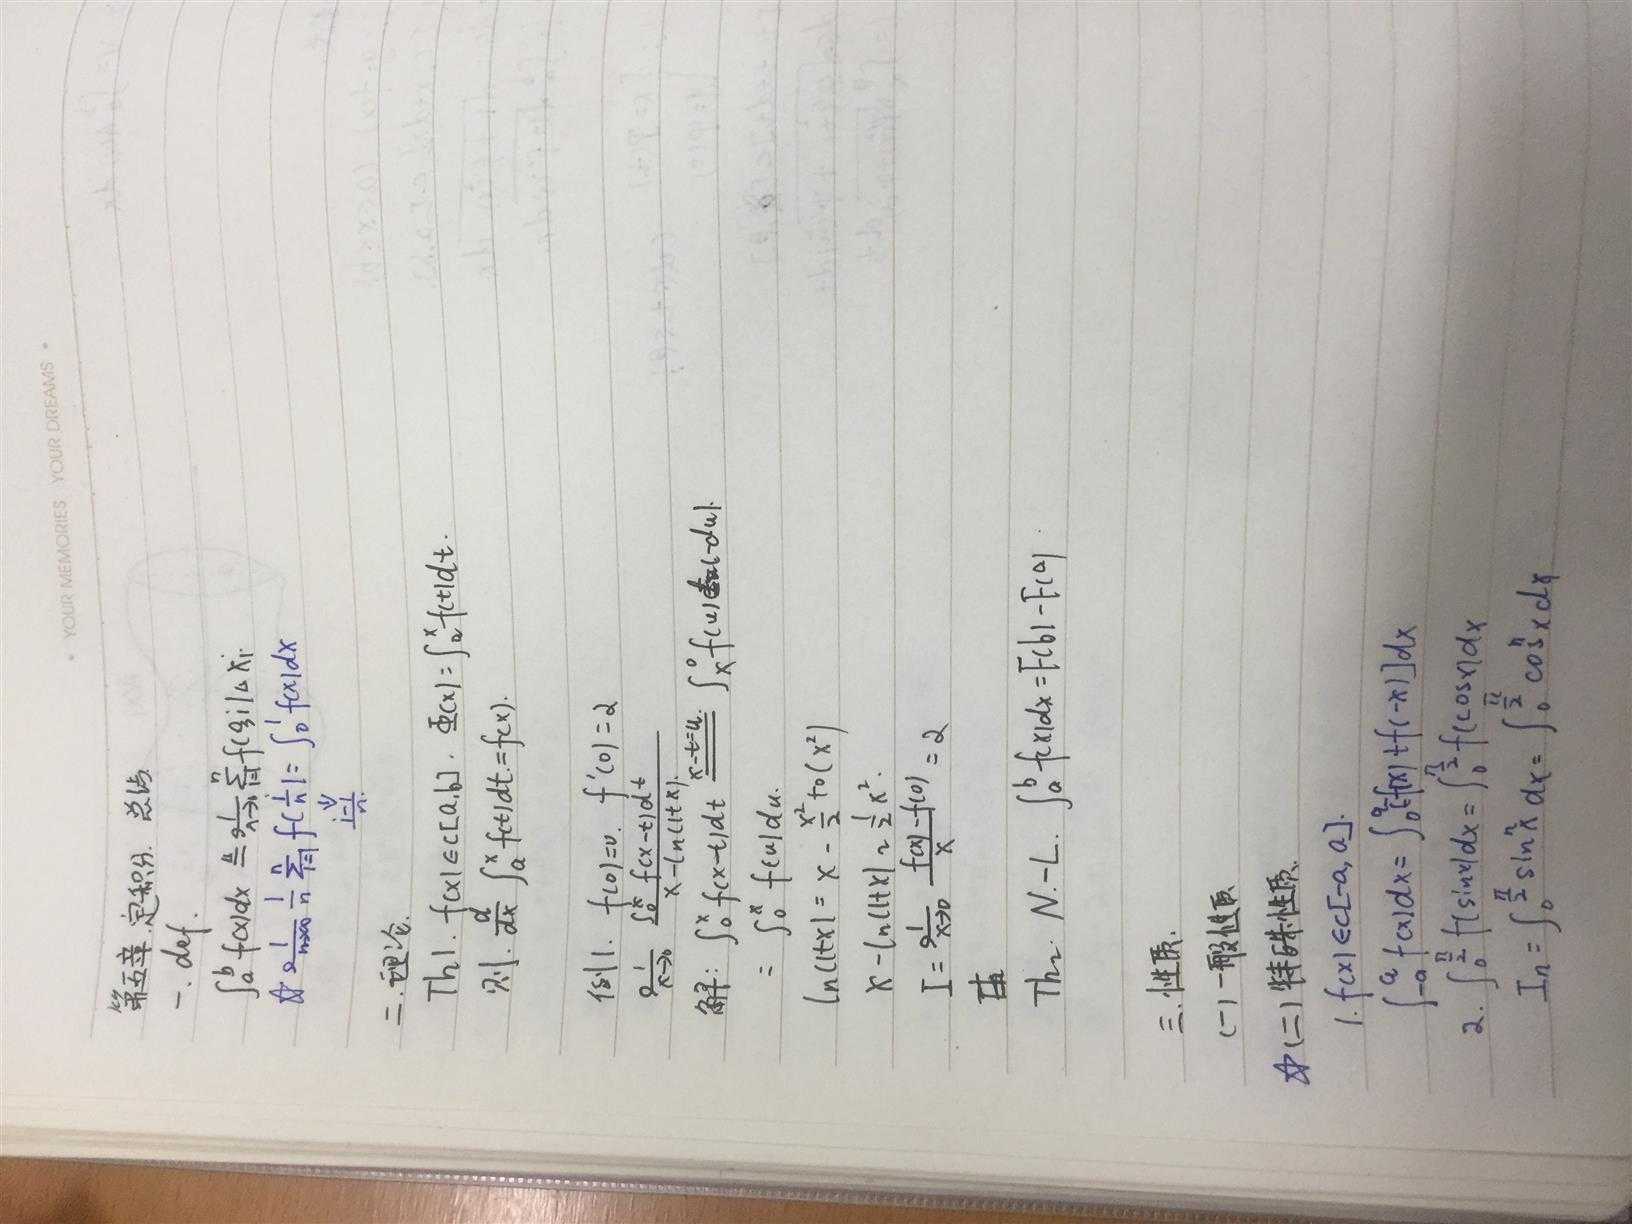 YOUR MEMORIES YOUR DREAMS
第五章 定积分 总结
一. def.
∫_a^b f(x)dx ≜ lim_{λ→0} Σ_{i=1}^n f(ξi)Δxi.
☆ lim_{n→∞} 1/n Σ_{i=1}^n f(i/n) = ∫_0^1 f(x)dx
i-1/n
二. 理论.
Th1. f(x)∈C[a,b]. Φ(x)=∫_a^x f(t)dt.
则. d/dx ∫_a^x f(t)dt.=f(x).
例1. f(0)=0. f'(0)=2
lim_{x→0} ∫_0^x f(x-t)dt / x-ln(1+x).
解: ∫_0^x f(x-t)dt x-t=u. ∫_x^0 f(u)(-du).
= ∫_0^x f(u)du.
ln(1+x)=x-x²/2+o(x²)
x-ln(1+x)~1/2x².
I=lim_{x→0} f(x)-f(0)/x =2
Th2 N.-L. ∫_a^b f(x)dx=F(b)-F(a).
三. 性质.
(一)一般性质
☆(二)特殊性质.
1. f(x)∈C[-a,a].
∫_{-a}^a f(x)dx=∫_0^a[f(x)+f(-x)]dx
2. ∫_0^{π/2} f(sinx)dx=∫_0^{π/2} f(cosx)dx
In=∫_0^{π/2} sin^n x dx=∫_0^{π/2} cos^n x dx